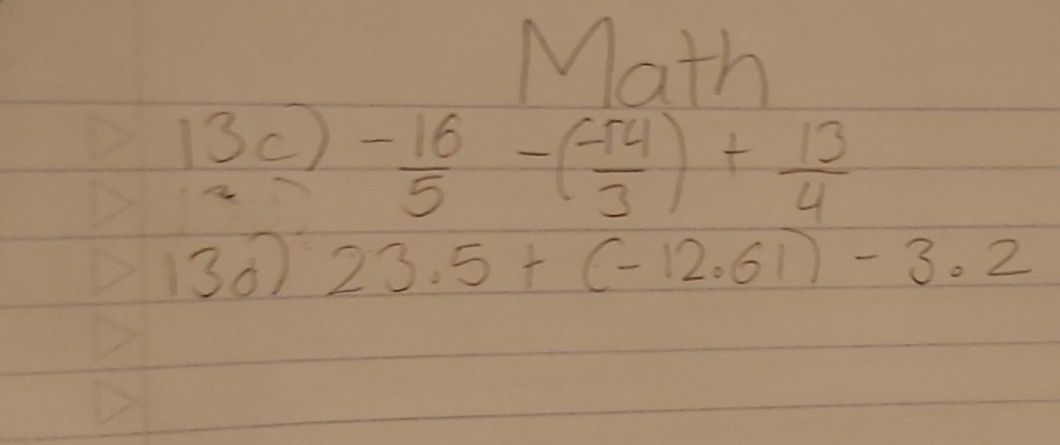 Math
13c) -16/5 - (-14/3) + 13/4
13d) 23.5 + (-12.61) - 3.2